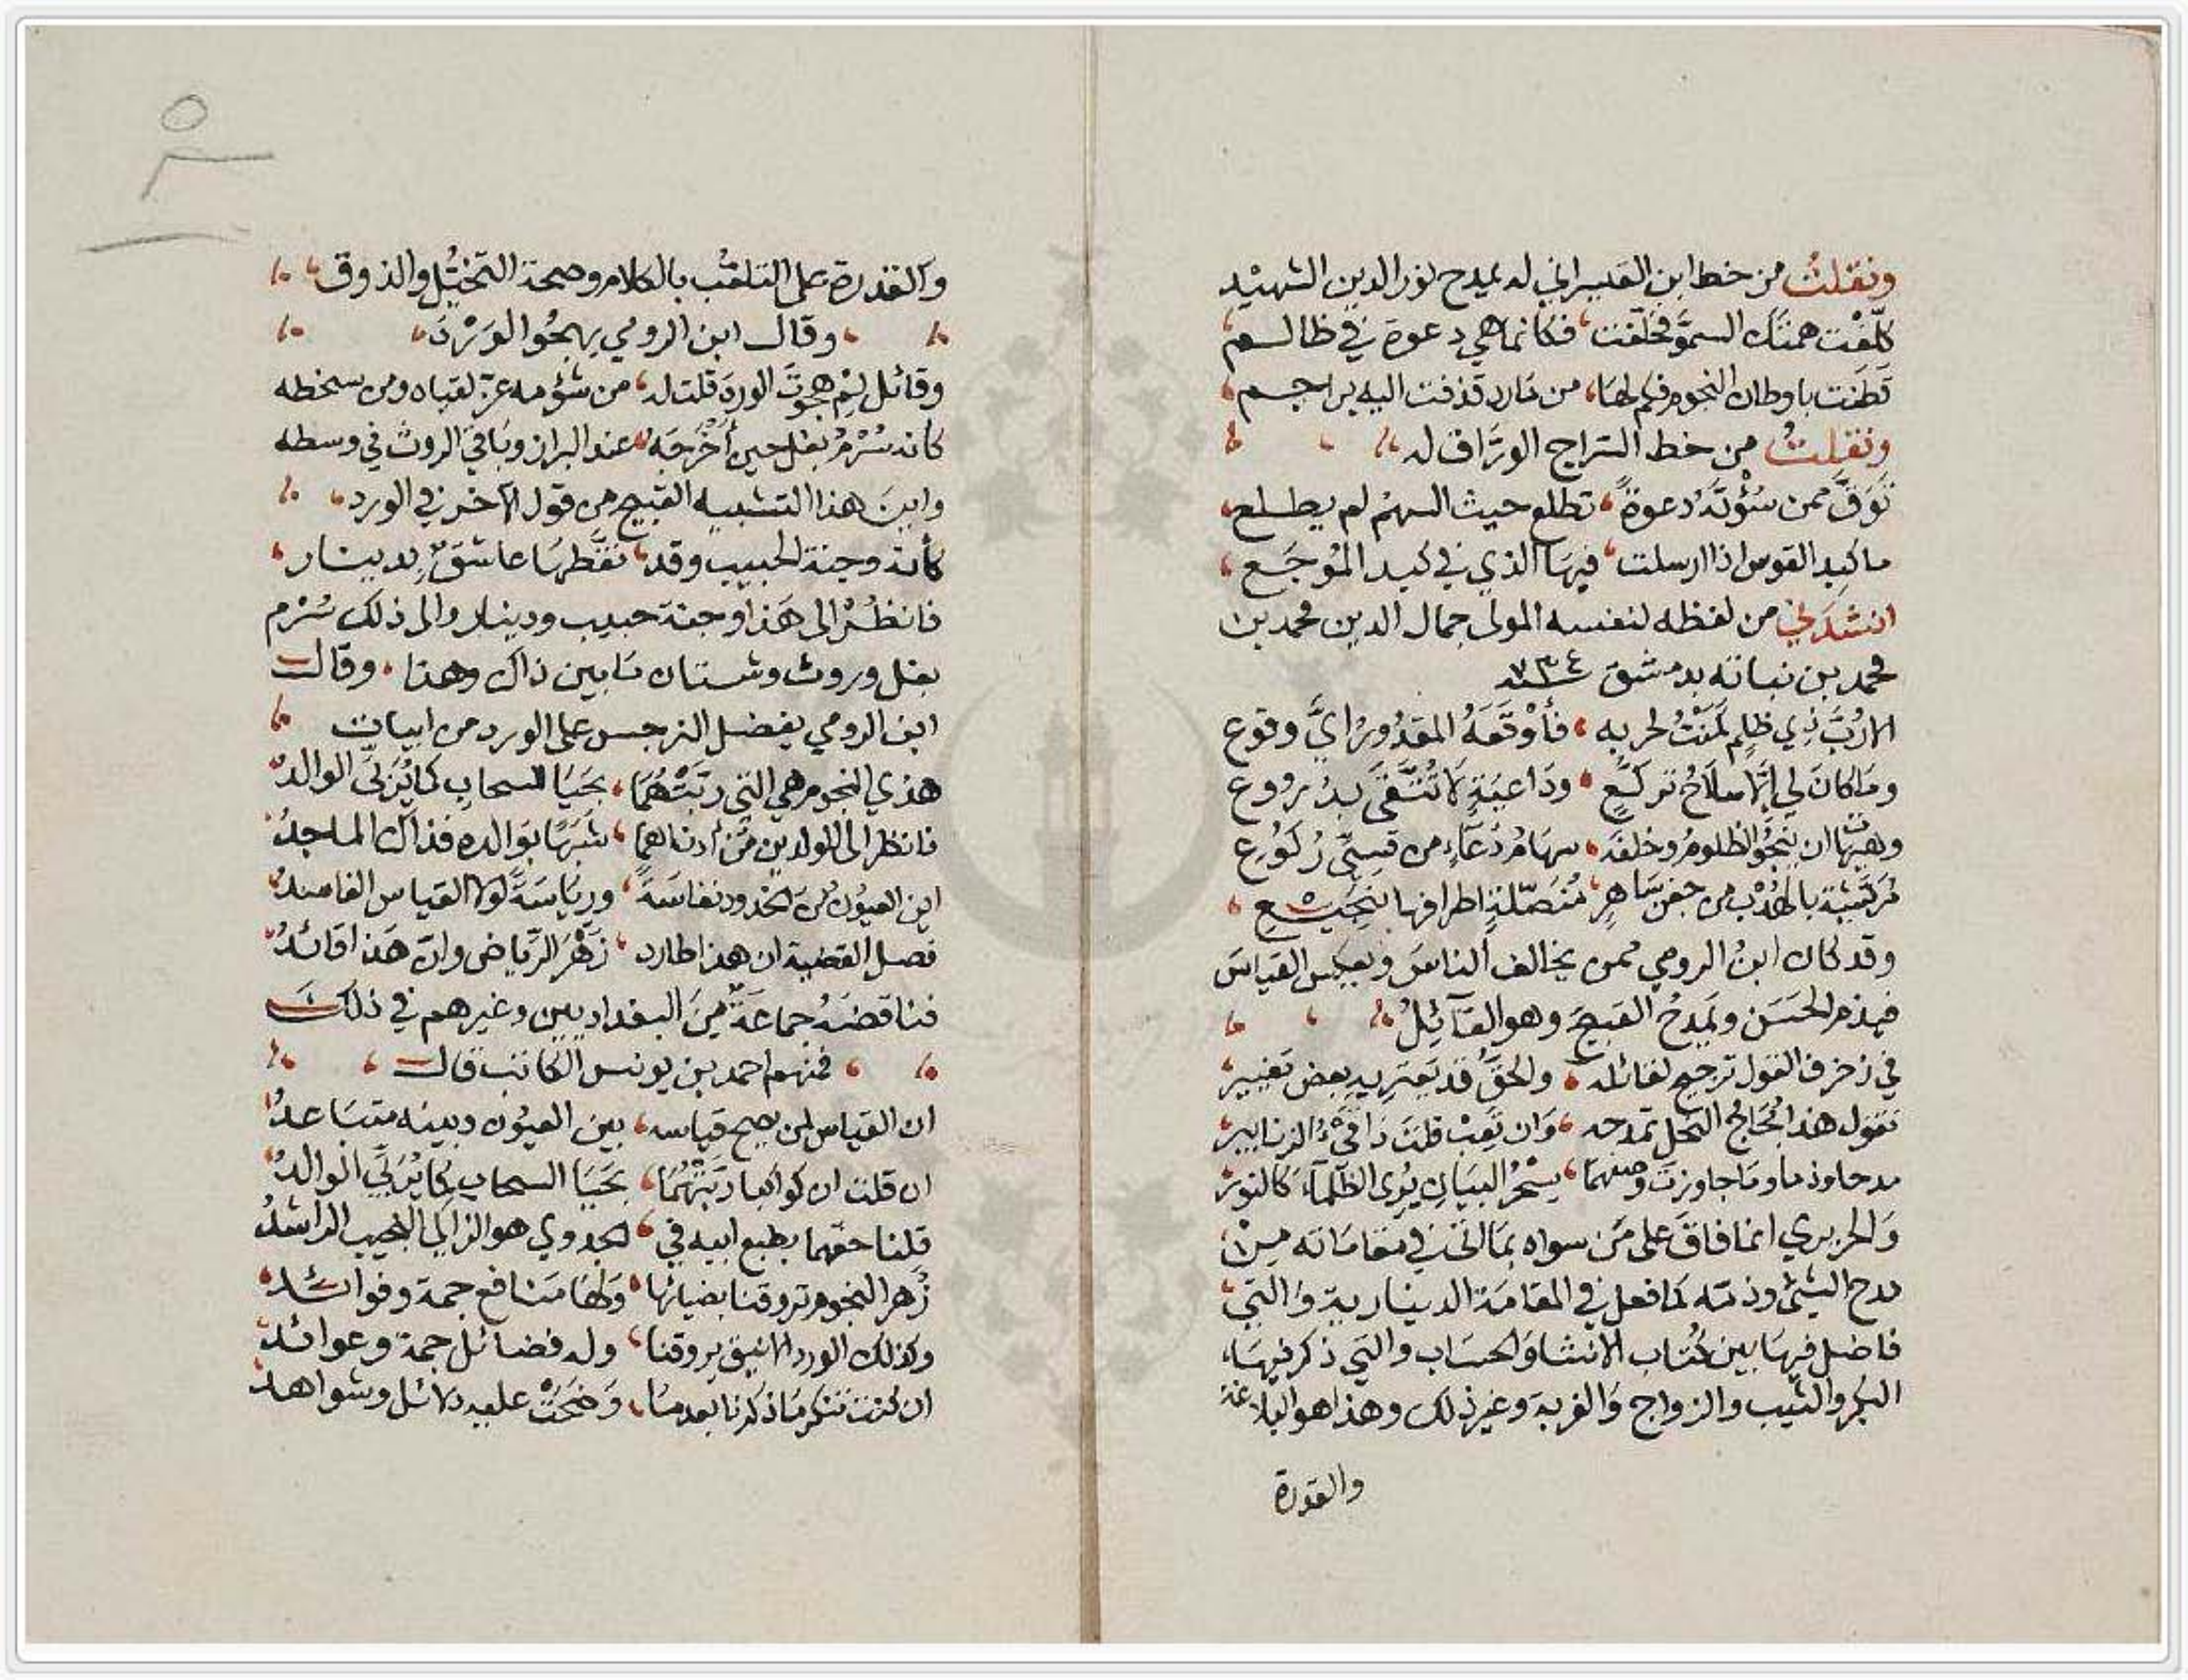 ونقلت من خط ابن القيسراني له يمدح نور الدين الشهيد
كلفت همتك السمو فحلقت، فكانما هي دعوة في ظالم
قطنت باوطان النجوم فكم لها، من مارد قذفت اليه براجم،
ونقلت من خط السراج الوراق له
توق ممن سؤته دعوة، تطلع حيث السهم لم يطلع،
ما كبد القوس اذا ارسلت، فيها الذي في كبد الموجع،
انشدني من لفظه لنفسه المولى جمال الدين محمد بن
محمد بن نباته بدمشق سنة ٧٣٤
الا رب ذي ظلم كمنت لحربه، فأوقعه المقدور اي وقوع
وما كان لي الا سلاح تركع، وداعية لا تتقى بدروع
وهيهات ان ينجو الظلوم وخلفه، سهام دعاء من قسي ركوع
مريشة بالهدب من جفن ساهر، منصلة اطرافها بنجيع،
وقد كان ابن الرومي ممن يخالف الناس ويعكس القياس
فيذم الحسن ويمدح القبيح وهو القآئل
في زخرف القول ترجيح لقائله، والحق قد يعتريه بعض تغيير،
تقول هذا مجاج النحل تمدحه، وان تعب قلت ذا قيء الزنابير،
مدحا وذما وما جاوزت وصفهما، سحر البيان يرى الظلماء كالنور،
والحريري انما فاق على من سواه بما اتى في مقاماته من
مدح الشئ وذمه كما فعل في المقامة الدينارية والتي،
فاضل فيها بين كتاب الانشا والحساب والتي ذكر فيها،
البكر والثيب والزواج والغربة وغير ذلك وهذا هو البلاغة
والقدرة
٥
والقدرة على التلعب بالكلام وصحة التخيل والذوق
وقال ابن الرومي يهجو الورد،
وقائل لم هجوت الورد قلت له، من شؤمه عز لقياه ومن سخطه
كانه سرم بغل حين أخرجه، عند البراز وباقي الروث في وسطه
واين هذا التشبيه القبيح من قول الآخر في الورد،
كأنه وجنة الحبيب وقد، نقطها عاشق بدينار،
فانظر الى هذا وجنة حبيب ودينار والى ذلك سرم
بغل وروث وشتان ما بين ذاك وهذا، وقال
ابن الرومي يفضل النرجس على الورد من ابيات
هذي النجوم هي التي ربتهما، بحيا السحاب كما يربي الوالد
فانظر الى الولدين من ادناهما، شبها بوالده فذاك الماجد
اين العيون من الخدود نفاسة، ورياسة لولا القياس الفاسد
فصل القضية ان هذا طارد، زهر الرياض وان هذا قائد
فناقضه جماعة من البغداديين وغيرهم في ذلك
فمنهم احمد بن يونس الكاتب قال،
ان القياس لمن يصح قياسه، بين العيون وبينه متباعد
ان قلت ان كواكبا ربتهما، بحيا السحاب كما يربي الوالد
قلنا احقهما بطبع ابيه في، الجدوى هو الزاكي النجيب الراشد
زهر النجوم تروقنا بضيائها، ولها منافع جمة وفوائد
وكذلك الورد الانيق يروقنا، وله فضائل جمة وعوائد
ان كنت تنكر ما ذكرنا بعدما، وضحت عليه دلائل وشواهد